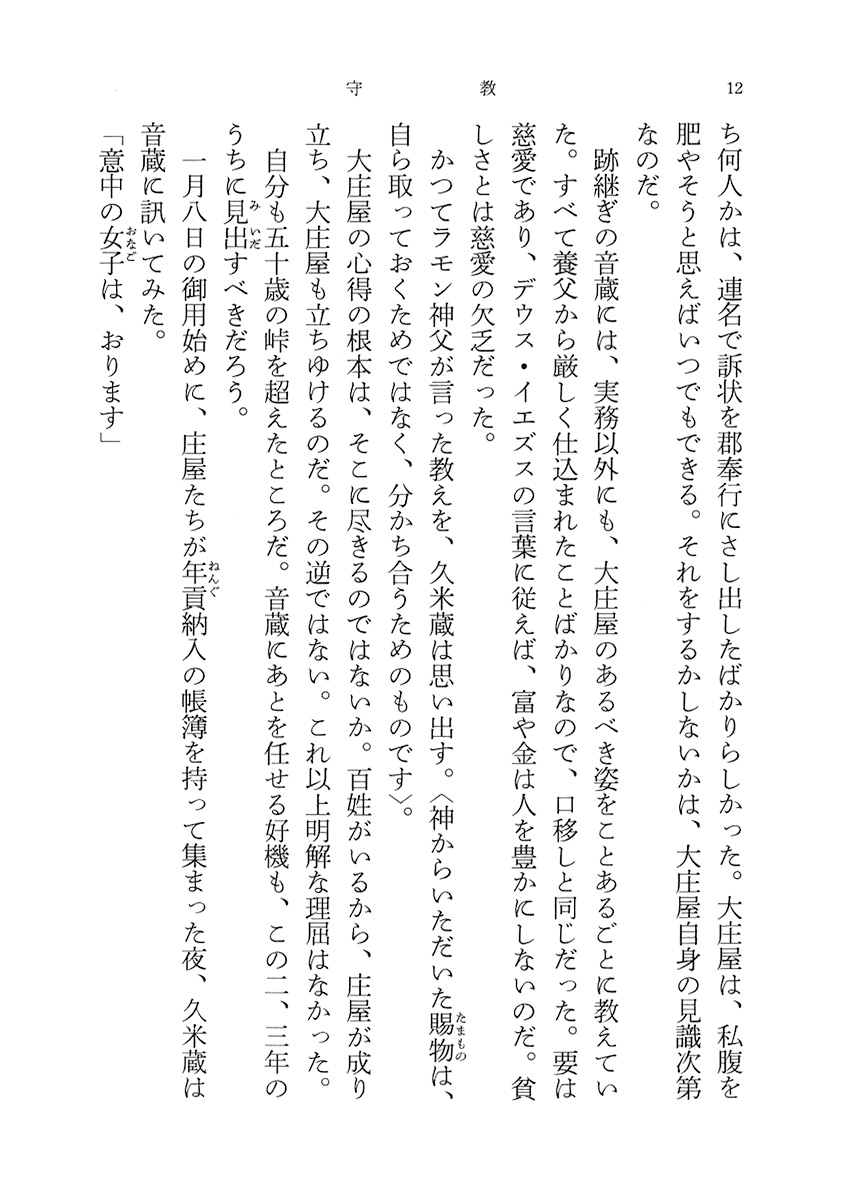 12
教守
ち何人かは、連名で訴状を郡奉行にさし出したばかりらしかった。大庄屋は、私腹を
肥やそうと思えばいつでもできる。それをするかしないかは、大庄屋自身の見識次第
なのだ。
跡継ぎの音蔵には、実務以外にも、大庄屋のあるべき姿をことあるごとに教えてい
た。すべて養父から厳しく仕込まれたことばかりなので、口移しと同じだった。要は
慈愛であり、デウス・イエズスの言葉に従えば、富や金は人を豊かにしないのだ。貧
しさとは慈愛の欠乏だった。
かつてラモン神父が言った教えを、久米蔵は思い出す。〈神からいただいた賜物たまものは、
自ら取っておくためではなく、分かち合うためのものです〉。
大庄屋の心得の根本は、そこに尽きるのではないか。百姓がいるから、庄屋が成り
立ち、大庄屋も立ちゆけるのだ。その逆ではない。これ以上明解な理屈はなかった。
自分も五十歳の峠を超えたところだ。音蔵にあとを任せる好機も、この二、三年の
うちに見出みいだすべきだろう。
一月八日の御用始めに、庄屋たちが年貢ねんぐ納入の帳簿を持って集まった夜、久米蔵は
音蔵に訊いてみた。
「意中の女子おなごは、おります」